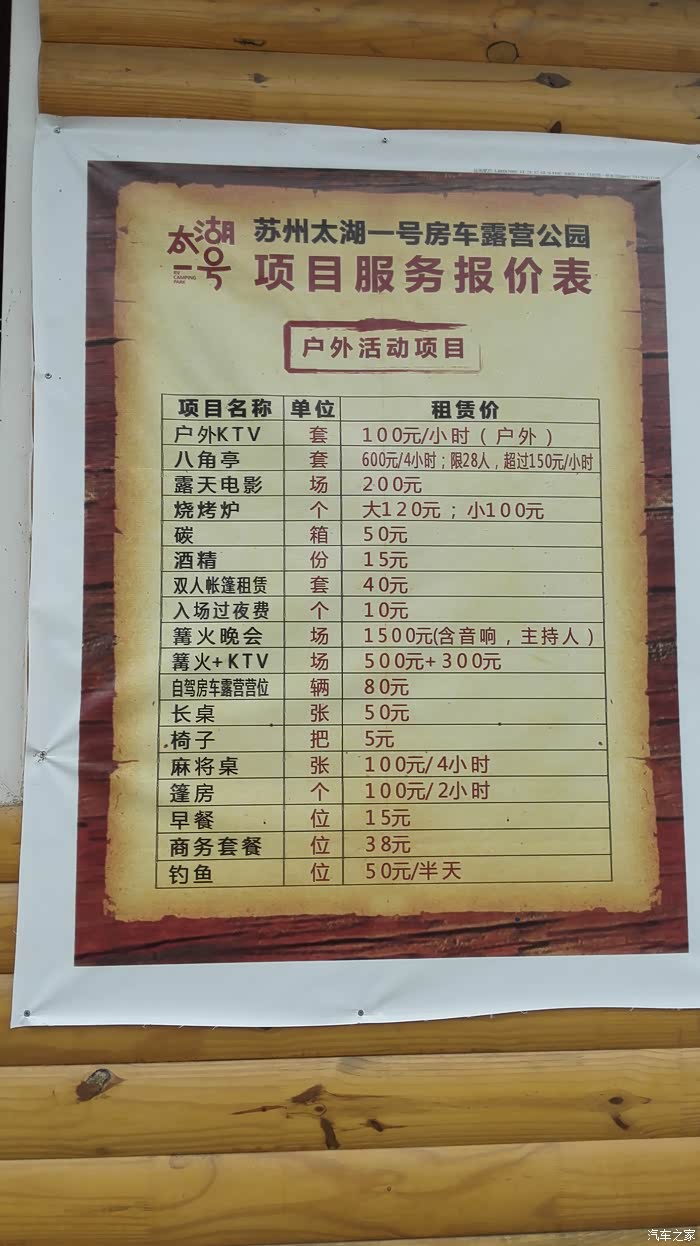 太湖一号
RV CAMPING PARK
苏州太湖一号房车露营公园
项目服务报价表
户外活动项目
项目名称 单位 租赁价
户外KTV 套 100元/小时（户外）
八角亭 套 600元/4小时；限28人，超过150元/小时
露天电影 场 200元
烧烤炉 个 大120元；小100元
碳 箱 50元
酒精 份 15元
双人帐篷租赁 套 40元
入场过夜费 个 10元
篝火晚会 场 1500元(含音响，主持人）
篝火+KTV 场 500元+300元
自驾房车露营营位 辆 80元
长桌 张 50元
椅子 把 5元
麻将桌 张 100元/4小时
篷房 个 100元/2小时
早餐 位 15元
商务套餐 位 38元
钓鱼 位 50元/半天
汽车之家